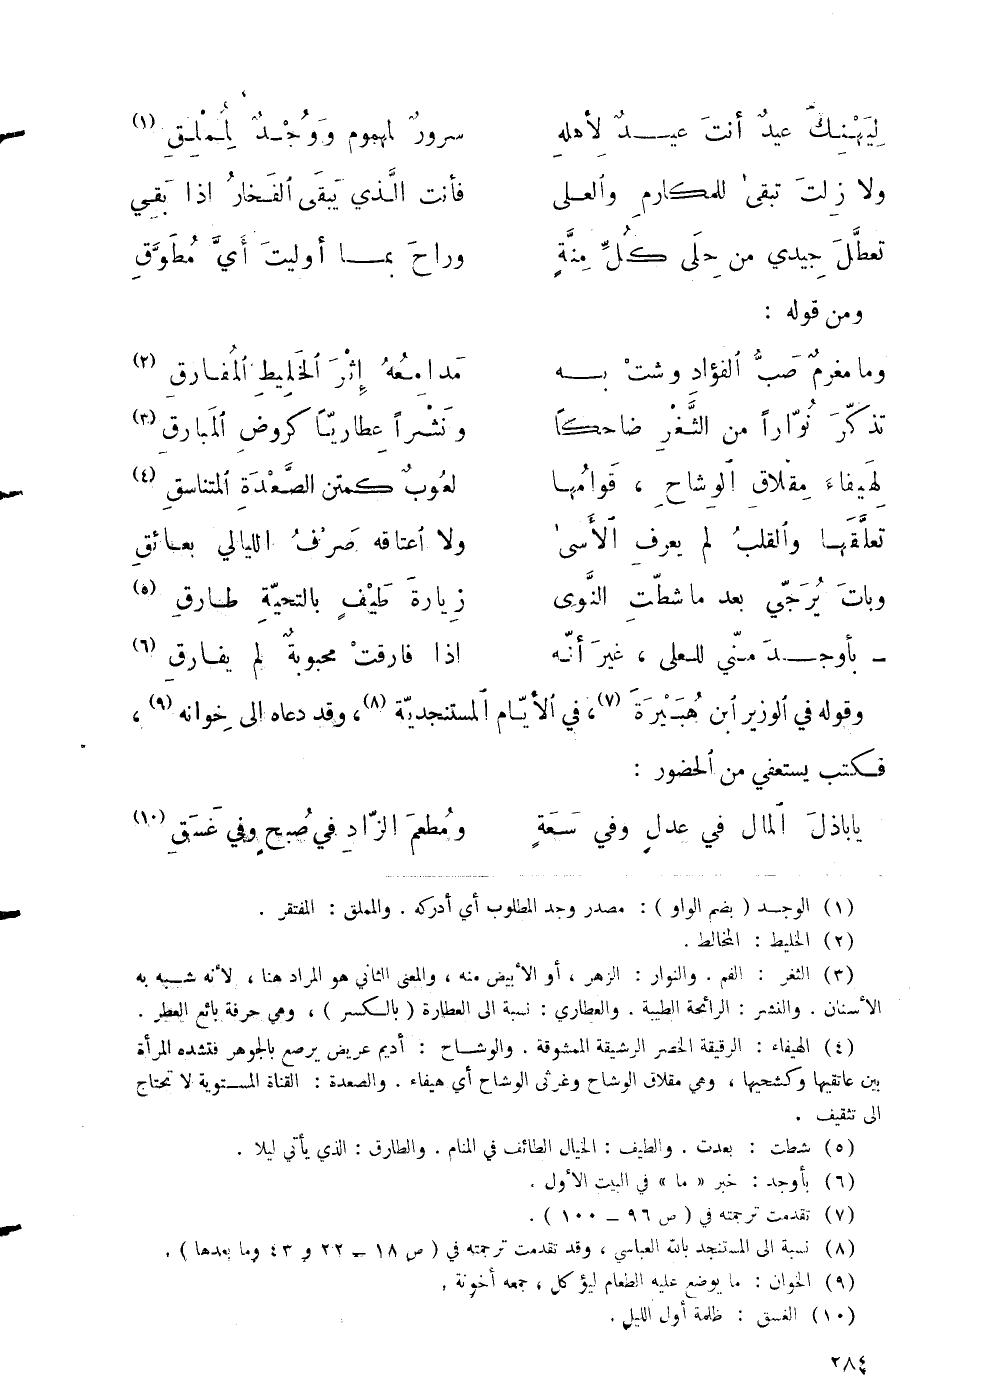 لِيَهْنِكَ عيدٌ أنتَ عيــدٌ لأهلهِ سرورٌ لمهمومٍ وَوُجْــدٌ لِمُمْلِقِ (١)
ولا زلتَ تبقىٰ للمكارمِ والعلى فأنت الَّذي يَبقَى ٱلفَخارُ اذا بَقِي
تعطَّلَ جِيدي من حِلَى كُلِّ مِنَّةٍ وراحَ بمــا أوليتَ أَيَّ مُطَوَّقِ
ومن قوله :
وما مغرمٌ صَبُّ ٱلفؤادِ وشتْ بــه مَدامِعُهُ إِثْرَ ٱلخَلِيطِ ٱلمُفارِقِ (٢)
تذكّرَ نُوّاراً من الثَّغْرِ ضاحكاً ونَشْراً عِطاريّاً كروضِ ٱلمَبارقِ (٣)
لِهيفاءَ مِقلاقِ ٱلوِشاحِ ، قَوامُها لعُوبٌ كمتنِ الصَّعْدَةِ ٱلمتناسقِ (٤)
تعلَّقَها وٱلقلبُ لم يعرفِ ٱلأَسىٰ ولا ٱعتاقه صَرْفُ الليالي بعائقِ
وباتَ يُرَجّي بعد ما شطّتِ النَّوى زيارةَ طَيْفٍ بالتحيّةِ طارقِ (٥)
ــ بأوجــدَ منّي للعلى ، غيرَ أنّه اذا فارقتْ محبوبةٌ لم يفارقِ (٦)
وقوله في ٱلوزير ٱبن هُبَيْرَةَ (٧)، في ٱلأيّام ٱلمستنجديّة (٨)، وقد دعاه الى خِوانه (٩) ،
فكتب يستعفي من ٱلحضور :
ياباذلَ ٱلمال في عدلٍ وفي سَعَةٍ ومُطعمَ الزّادِ في صُبحٍ وفي غَسَقِ (١٠)
(١) الوجــد ( بضم الواو ) : مصدر وجد المطلوب أي أدركه . والمملق : المفتقر .
(٢) الخليط : المخالط .
(٣) الثغر : الفم . والنوار : الزهر ، أو الأبيض منه ، والمعنى الثاني هو المراد هنا ، لأنه شبه به
الأسنان . والنشر : الرائحة الطيبة . والعطاري : نسبة الى العطارة ( بالكسر ) ، وهي حرفة بائع العطر .
(٤) الهيفاء : الرقيقة الخصر الرشيقة الممشوقة . والوشــاح : أديم عريض يرصع بالجوهر فتشده المرأة
بين عاتقيها وكشحيها ، وهي مقلاق الوشاح وغرثى الوشاح أي هيفاء . والصعدة : القناة المستوية لا تحتاج
الى تثقيف .
(٥) شطت : بعدت . والطيف : الخيال الطائف في المنام . والطارق : الذي يأتي ليلا .
(٦) بأوجد : خبر « ما » في البيت الأول .
(٧) تقدمت ترجمته في ( ص ٩٦ ــ ١٠٠ ) .
(٨) نسبة الى المستنجد بالله العباسي ، وقد تقدمت ترجمته في ( ص ١٨ ــ ٢٢ و ٤٣ وما بعدها ) .
(٩) الخوان : ما يوضع عليه الطعام ليؤكل ، جمعه أخونة .
(١٠) الغسق : ظلمة أول الليل .
٢٨٤